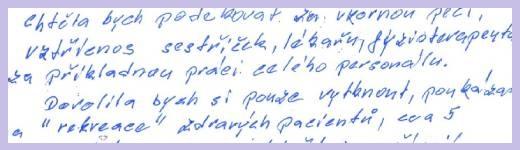 chtěla bych poděkovat za vzornou péči,
vztřícnos sestřiček, lékařů, fyzioterapeutů
za příkladnou práci celého personálu.
Dovolila bych si pouze vytknout, poukázat
a "rekreace" zdravých pacientů, cca 5